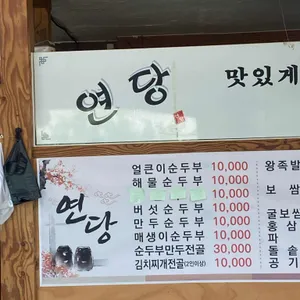 연당
맛있게
연당
얼큰이순두부 10,000
해물순두부 10,000
10,000
버섯순두부 10,000
만두순두부 10,000
매생이순두부 10,000
순두부만두전골 30,000
김치찌개전골(2인이상) 10,000
왕족발
보쌈
굴보쌈
홍삼
파
돌솥
공기